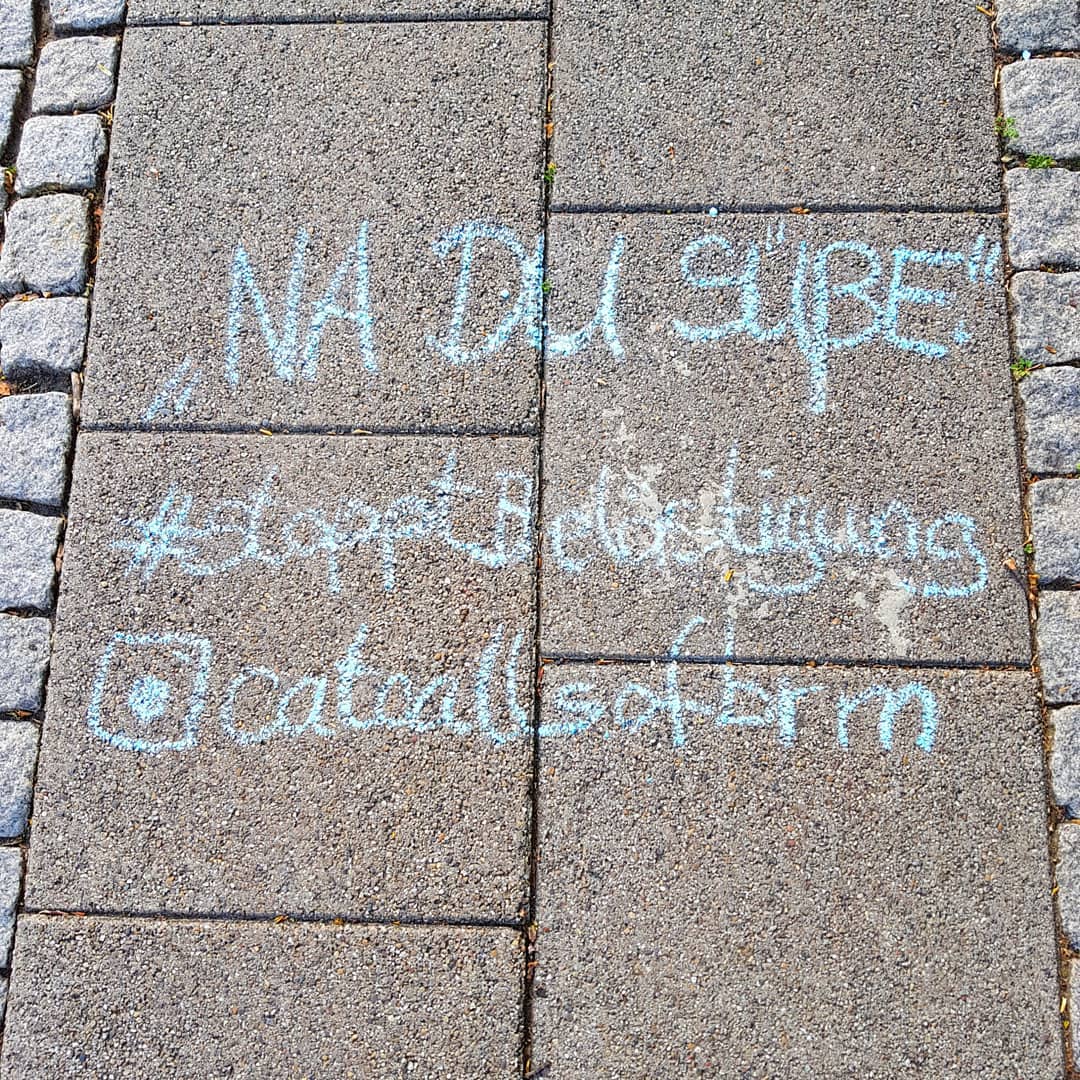 „NA DU SÜßE"
#stopptBelästigung
@catcallsofbrm